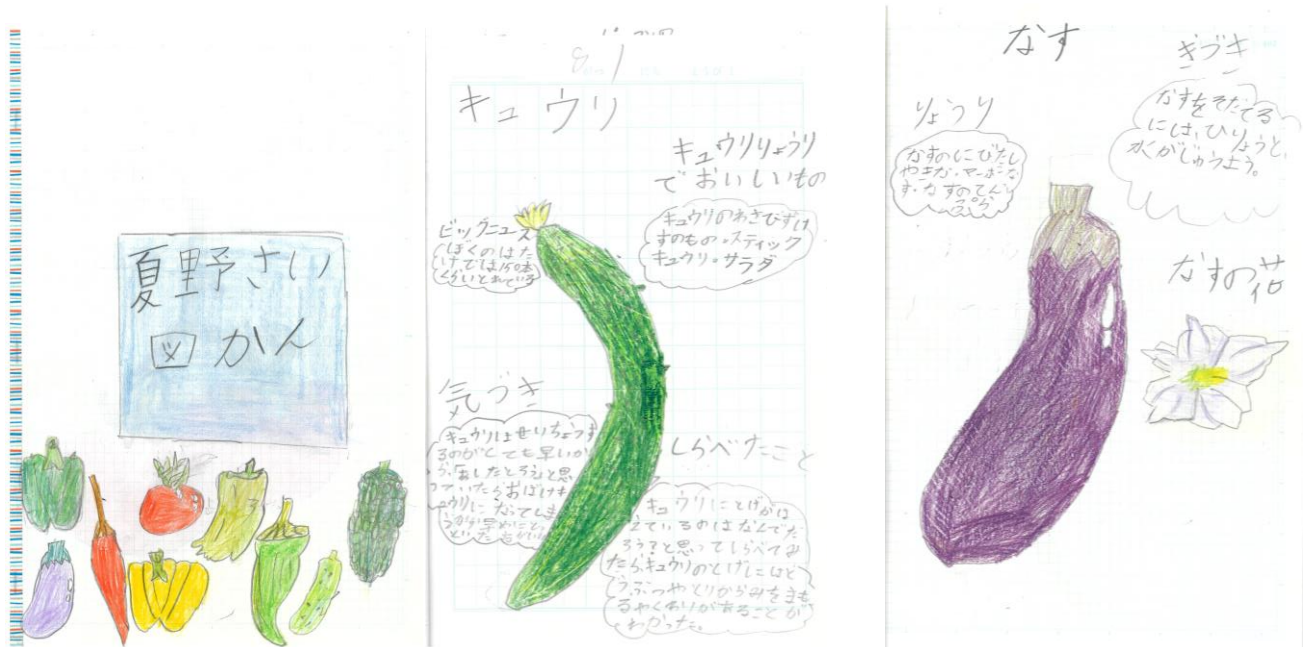 夏野さい
図かん
キュウリ
キュウリりょうり
でおいしいもの
キュウリのわさびずけ
すのもの・スティック
キュウリ・サラダ
ビックニュース
ぼくのはた
けでは
くらいとれている
気づき
キュウリはせいちょうす
るのがとても早いか
ら、あしたとろうと思
っていたらおばけキ
ュウリになってしま
しらべたこと
キュウリにとげがは
えているのはなんでだ
ろう?と思ってしらべてみ
たらキュウリのとげにはど
うぶつやとりからみをまも
るやくわりがあることが
わかった。
なす
りょうり
なすのにびたし
やきなす・マーボーな
す・なすのてん
ぷら
きづき
なすをそだてる
には、ひりょうと、
水がじゅうよう。
なすの花